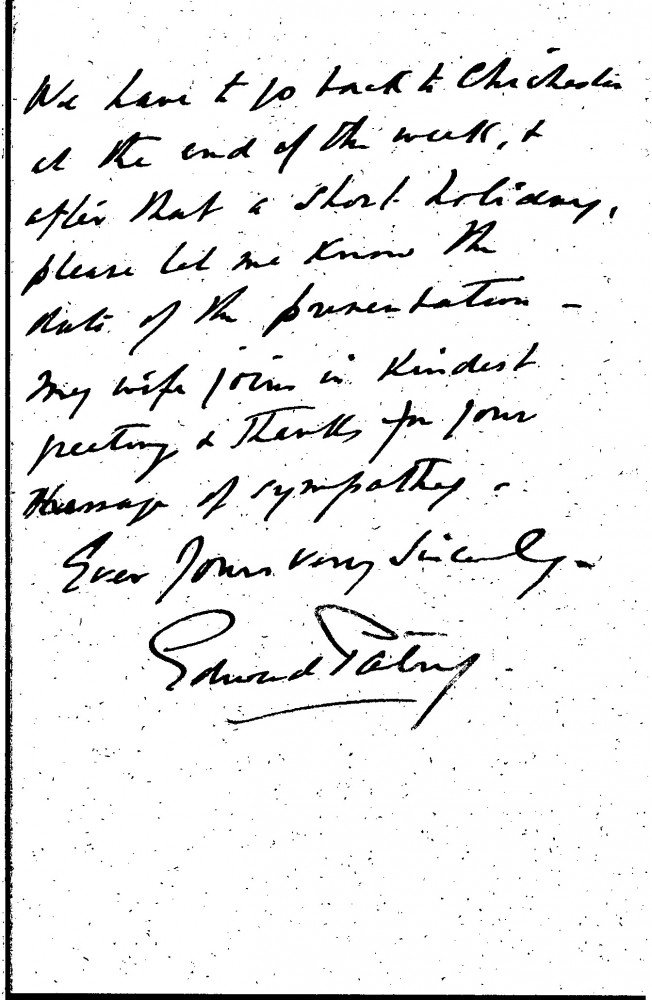 We have to go back to Chichester
at the end of the week, &
after that a short holiday,
please let me know the
date of the presentation -
My wife joins in kindest
greeting & thanks for your
message of sympathy -
Ever yours very sincerely -
Edward Patry